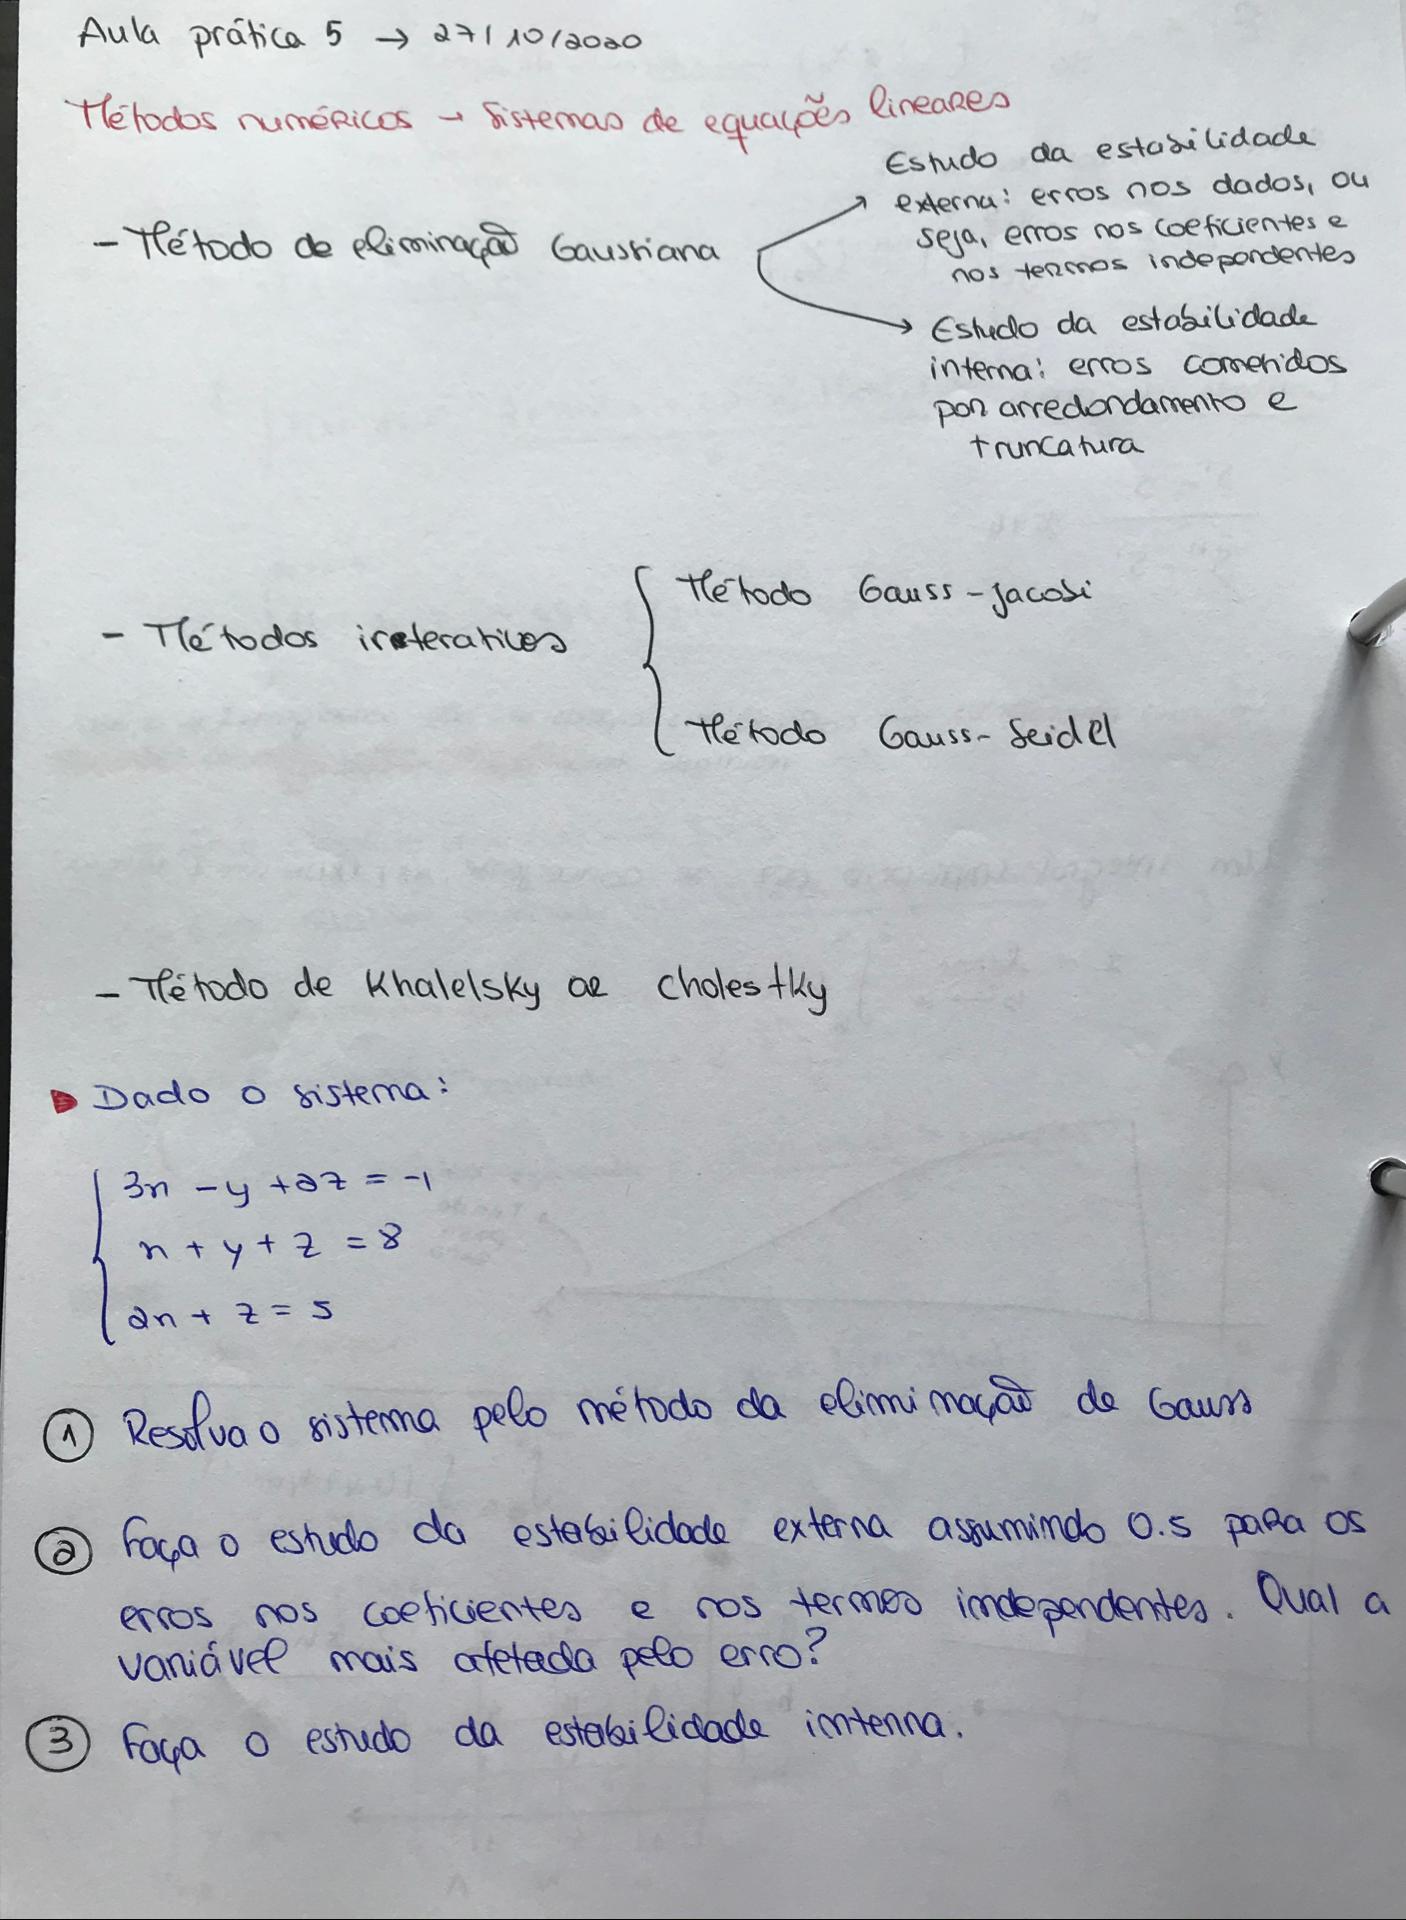 Aula prática 5 → 27/10/2020
Métodos numéricos → Sistemas de equações lineares
- Método de eliminação Gaussiana
Estudo da estabilidade
externa: erros nos dados, ou
seja, erros nos coeficientes e
nos termos independentes
Estudo da estabilidade
interna: erros cometidos
por arredondamento e
truncatura
- Métodos interativos
Método Gauss-Jacobi
Método Gauss-Seidel
- Método de Khalelsky ou Cholestky
Dado o sistema:
3x - y + 2z = -1
x + y + z = 8
2x + z = 5
① Resolva o sistema pelo método da eliminação de Gauss
② Faça o estudo da estabilidade externa assumindo 0.5 para os
erros nos coeficientes e nos termos independentes. Qual a
variável mais afetada pelo erro?
③ Faça o estudo da estabilidade interna.